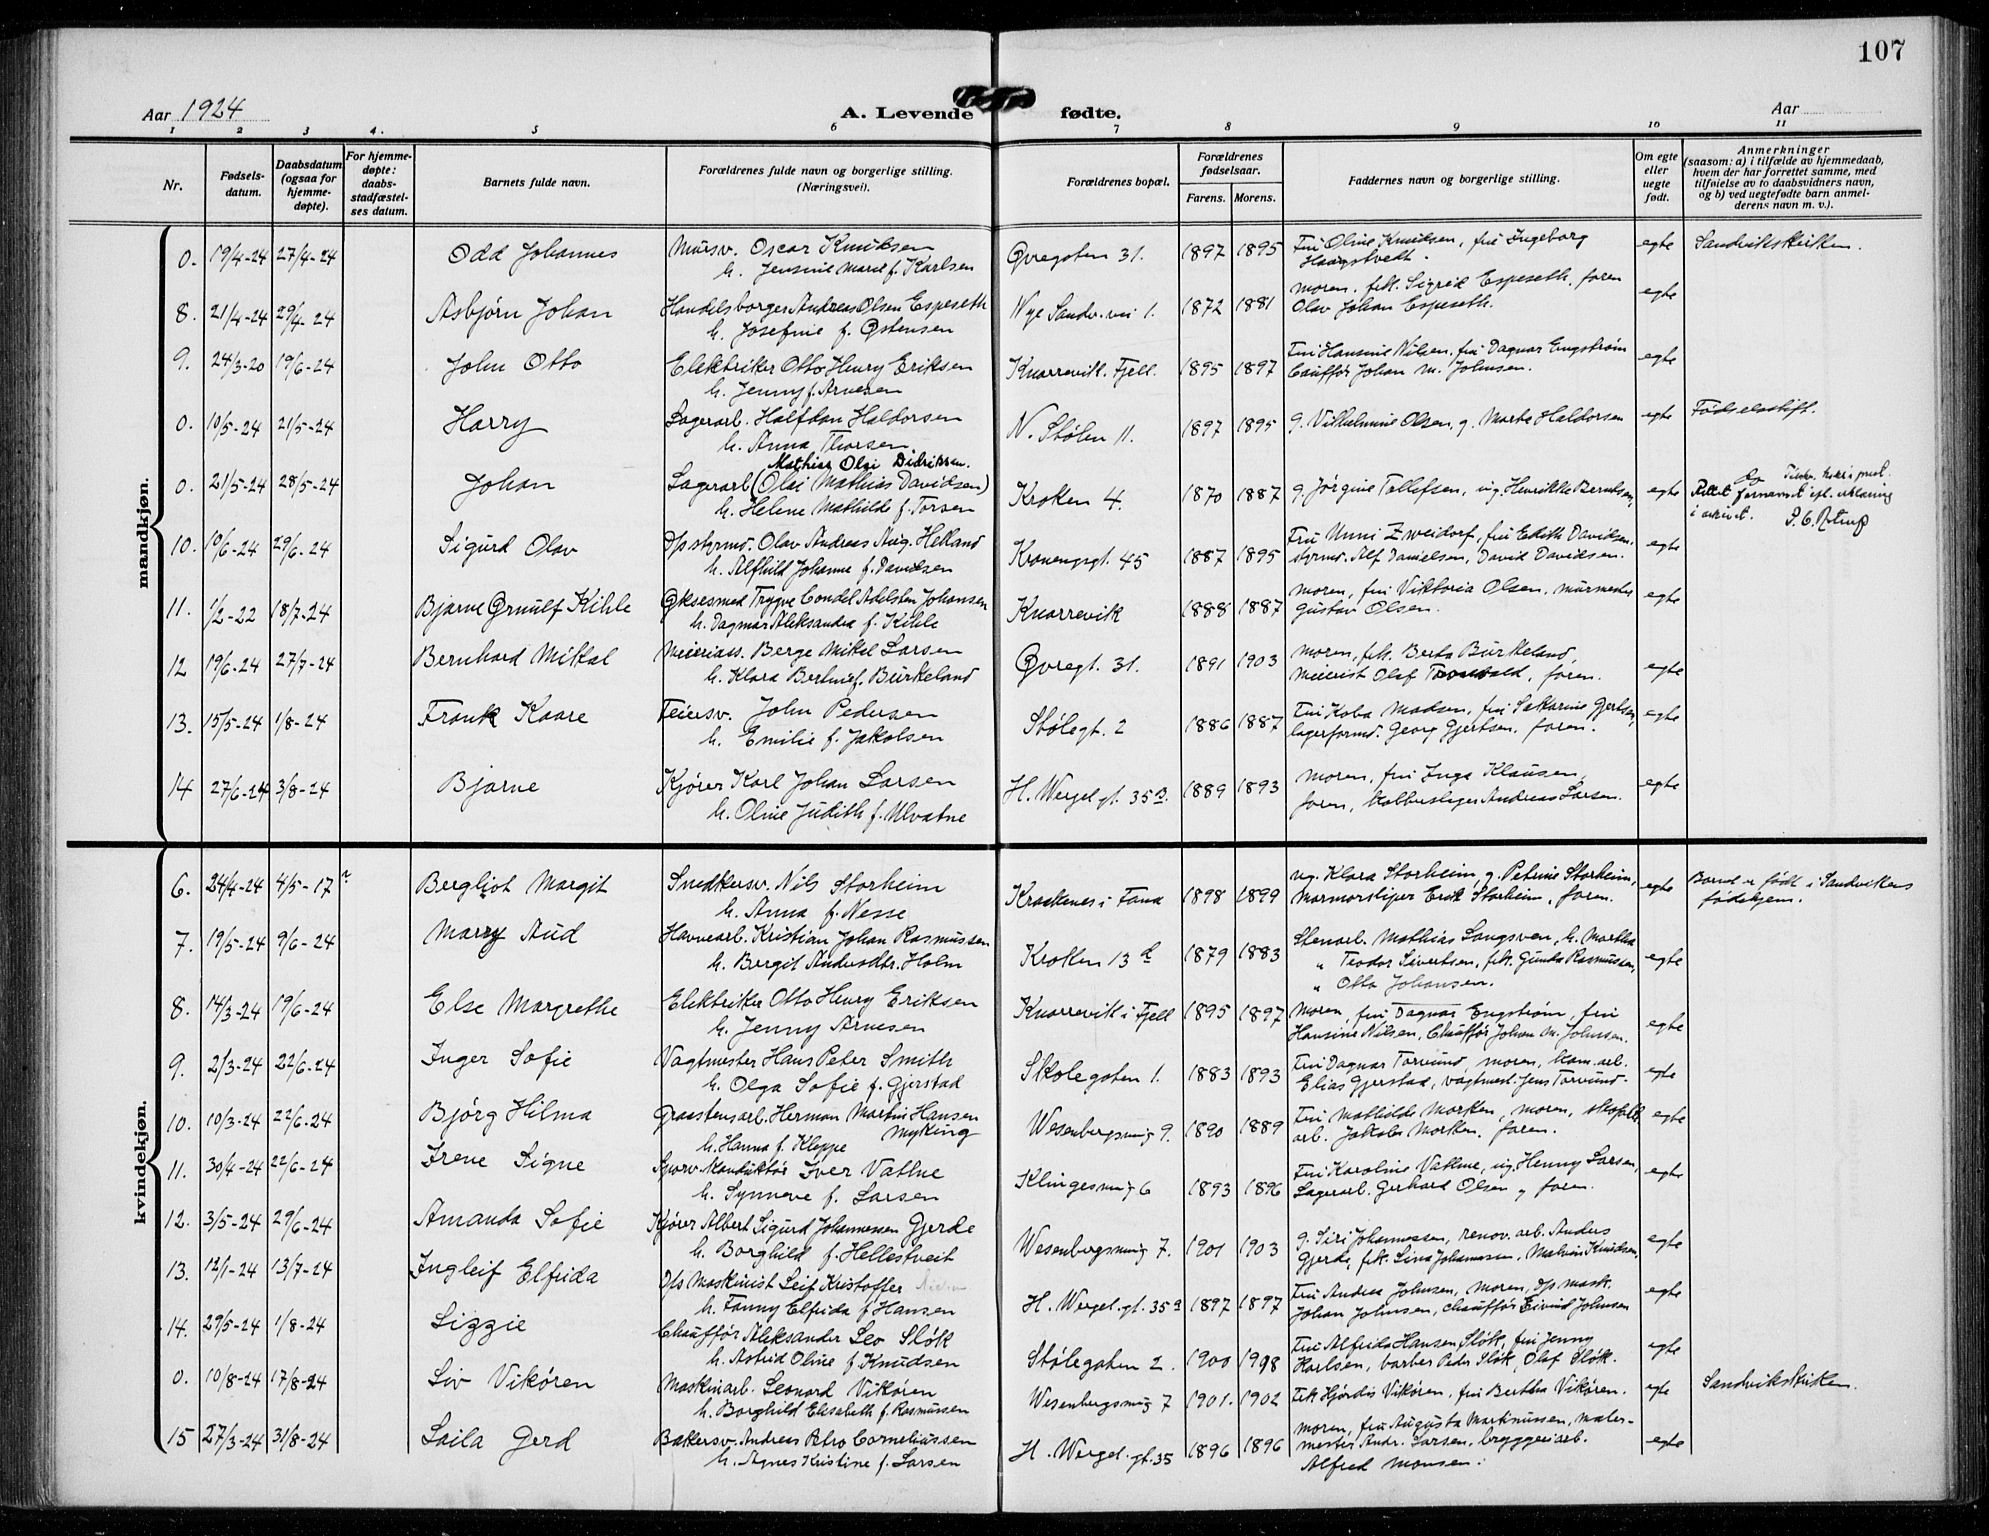 107
Aar 1924
A. Levende fødte.
Aar
1 2 3 4. 5 6 7 8 9 10 11
Nr.
Fødsels-datum.
Daabsdatum (ogsaa for hjemme-døpte).
For hjemme-døpte: daabs-stadfæstel-ses datum.
Barnets fulde navn.
Forældrenes fulde navn og borgerlige stilling. (Næringsvei).
Forældrenes bopæl.
Forældrenes fødselsaar.
Farens. Morens.
Faddernes navn og borgerlige stilling.
Om egte eller uegte født.
Anmerkninger
(saasom: a) i tilfælde av hjemmedaab, hvem der har forrettet samme, med tilføielse av to daabsvidners navn, og b) ved uegtefødte barn anmel-derens navn m. v.).
mandkjøn.
0. 19/4-24 27/4-24 Odd Johannes Mursv. Oscar Knudsen Øvregaten 31. 1897 1895 Fru Oline Knudsen, fru Ingeborg egte Sandvikskirken.
h. Jensine Marie f. Karlsen Haagstvedt.
8. 21/4-24 29/4-24 Asbjørn Johan Handelsborger Andreas Olsen Espeseth Nye Sandv.vei 1. 1872 1881 moren, frk. Sigrid Espeseth, faren egte
h. Josefine f. Østensen Olav Johan Espeseth.
9. 24/3-20 19/6-24 John Otto Elektriker Otto Henry Eriksen Knarrevik. Fjell. 1895 1897 Fru Hansine Nilsen, fru Dagnar Engstrøm egte
h. Jenny f. Arnesen Cauffør Johan M. Johnsen.
0. 10/5-24 21/5-24 Harry Lagerarb. Halfdan Haldorsen N. Stølen 11. 1897 1895 g. Vilhelmine Olsen, g. Marta Haldorsen egte Fødselsstift.
h. Anna Thorsen
Mathias Olai Didriksen.
0. 21/5-24 28/5-24 Johan Lagerarb (Olai Mathias Davidsen) Kroken 4. 1870 1887 g. Jørgine Tollefsen, ug. Henrikke Berntsen, egte Rettet fornavnet ifl. erklæring
h. Helene Mathilde f. Torsen i arkivet.
10. 10/6-24 29/6-24 Sigurd Olav D/s styrmd. Olav Andreas Aug. Helland Kroneng.gt. 45 1887 1895 Fru Unni Zweidorf, fru Edith Davidsen, egte
h. Alfhild Johanne f. Davidsen styrmd. Alf Danielsen, David Davidsen.
11. 1/2-22 18/7-24 Bjarne Ørnulf Kihle Øksesmed Trygve Condel Adelsten Johansen Knarrevik 1888 1887 moren, fru Viktoria Olsen, murmester egte
h. Dagmar Aleksandra f. Kihle Gustav Olsen.
12 19/6-24 27/7-24 Bernhard Mikal Meieriass. Berge Mikal Larsen Øvregt. 31. 1891 1903 moren, frk. Berta Burkeland, egte
h. Klara Bertine f. Burkeland Meierist Olaf Tronvold, faren.
13. 15/5-24 1/8-24 Frank Kaare Feiersv. John Pedersen Stølegt. 2 1886 1887 Fru Koba Madsen, fru Sakarine Gjertsen, egte
h. Emilie f. Jakobsen lagerformd. Georg Gjertsen, faren.
14 27/6-24 3/8-24 Bjarne Kjører Karl Johan Larsen H. Wergel. gt. 35 a. 1889 1893 moren, fru Inga Klausen, egte
h. Oline Judith f. Ulvatne faren, Andreas Larsen.
kvindekjøn.
6. 24/4-24 4/5-17 ? Bergliot Margit Snedkersv. Nils Storheim Kraakenes i Fana 1898 1899 ug. Klara Storheim, g. Petrine Storheim, egte Barnet er født i Sandvikens
h. Anna f. Nesse Marmorsliper Erik Storheim, faren. fødehjem.
7. 19/5-24 9/6-24 Marry Aud Havnearb. Kristian Johan Rasmussen Kroken 13 d 1879 1883 Stenarb. Mathias Langsven, h. Martha egte
h. Bergit Andersdtr. Holm " Teodor Sivertsen, frk. Gunda Rasmussen,
" Otto Johansen.
8. 14/3-24 19/6-24 Else Margrethe Elektriker Otto Henry Eriksen Knarrevik i Fjell 1895 1897 Moren, fru Dagnar Engstrøm, fru egte
h. Jenny Arnesen Hansine Nilsen, Chauffør Johan M. Johnsen.
9. 2/3-24 22/6-24 Inger Sofie Vagtmester Hans Peter Smith Skolegaten 1. 1883 1893 Fru Dagnar Torvund, moren, kom.arb. egte
h. Olga Sofie f. Gjerstad Elias Gjerstad, vagtmest. Jens Torvund.
10. 10/3-24 22/6-24 Bjørg Hilma Graastensarb. Herman Martin Hansen Wesenbergsmug 9. 1890 1889 Fru Mathilde Morken, moren, egte
Myking
h. Hanna f. Kleppe arb. Jakob Morken, faren.
11. 30/4-24 22/6-24 Irene Signe Sporv. konduktør Iver Vatne Klingesmug 6 1893 1896 Fru Karoline Vatne, ug. Henny Larsen, egte
h. Synneve f. Larsen Lagerarb. Gerhard Olsen og faren.
12. 3/5-24 29/6-24 Amanda Sofie Kjører Albert Sigurd Johannessen Gjerde Wesenbergsmug 7. 1901 1903 g. Siri Johannessen, renov. arb. Anders egte
h. Borghild f. Hellestveit Gjerde, frk. Lina Johannessen, Mathias Knudsen,
13. 12/1-24 13/7-24 Ingleif Elfrida D/s Maskinist Leif Kristoffer H. Wergel. gt. 35 a 1897 1897 Fru Andrea Johnsen, moren, d/s mask. egte
h. Fanny Elfrida f. Hansen Johan Johnsen, chauffør Eivind Johnsen
14. 29/5-24 1/8-24 Lizzie Chauffør Aleksander Leo Sløk Stølegaten 2. 1900 1998 Fru Alfrida Hansen Sløk, fru Jenny egte
h. Astrid Oline f. Knudsen Karlsen, barber Peder Sløk, Olaf Sløk.
0. 10/8-24 17/8-24 Liv Vikøren Maskinarb. Leonard Vikøren Wesenbergsmug 7 1901. 1902 Frk Hjørdis Vikøren, fru Bertha Vikøren. egte Sandvikskirken.
h. Borghild Elisabeth f. Rasmussen
15 27/3-24 31/8-24 Laila Gerd Bakersv. Andreas Petro Corneliussen H. Wergel. gt. 35 1896 1896 moren, fru Augusta Martinussen, maler- egte
h. Agnes Kristine f. Larsen mester Andr. Larsen, bryggeriarb.
Alfred Monsen.